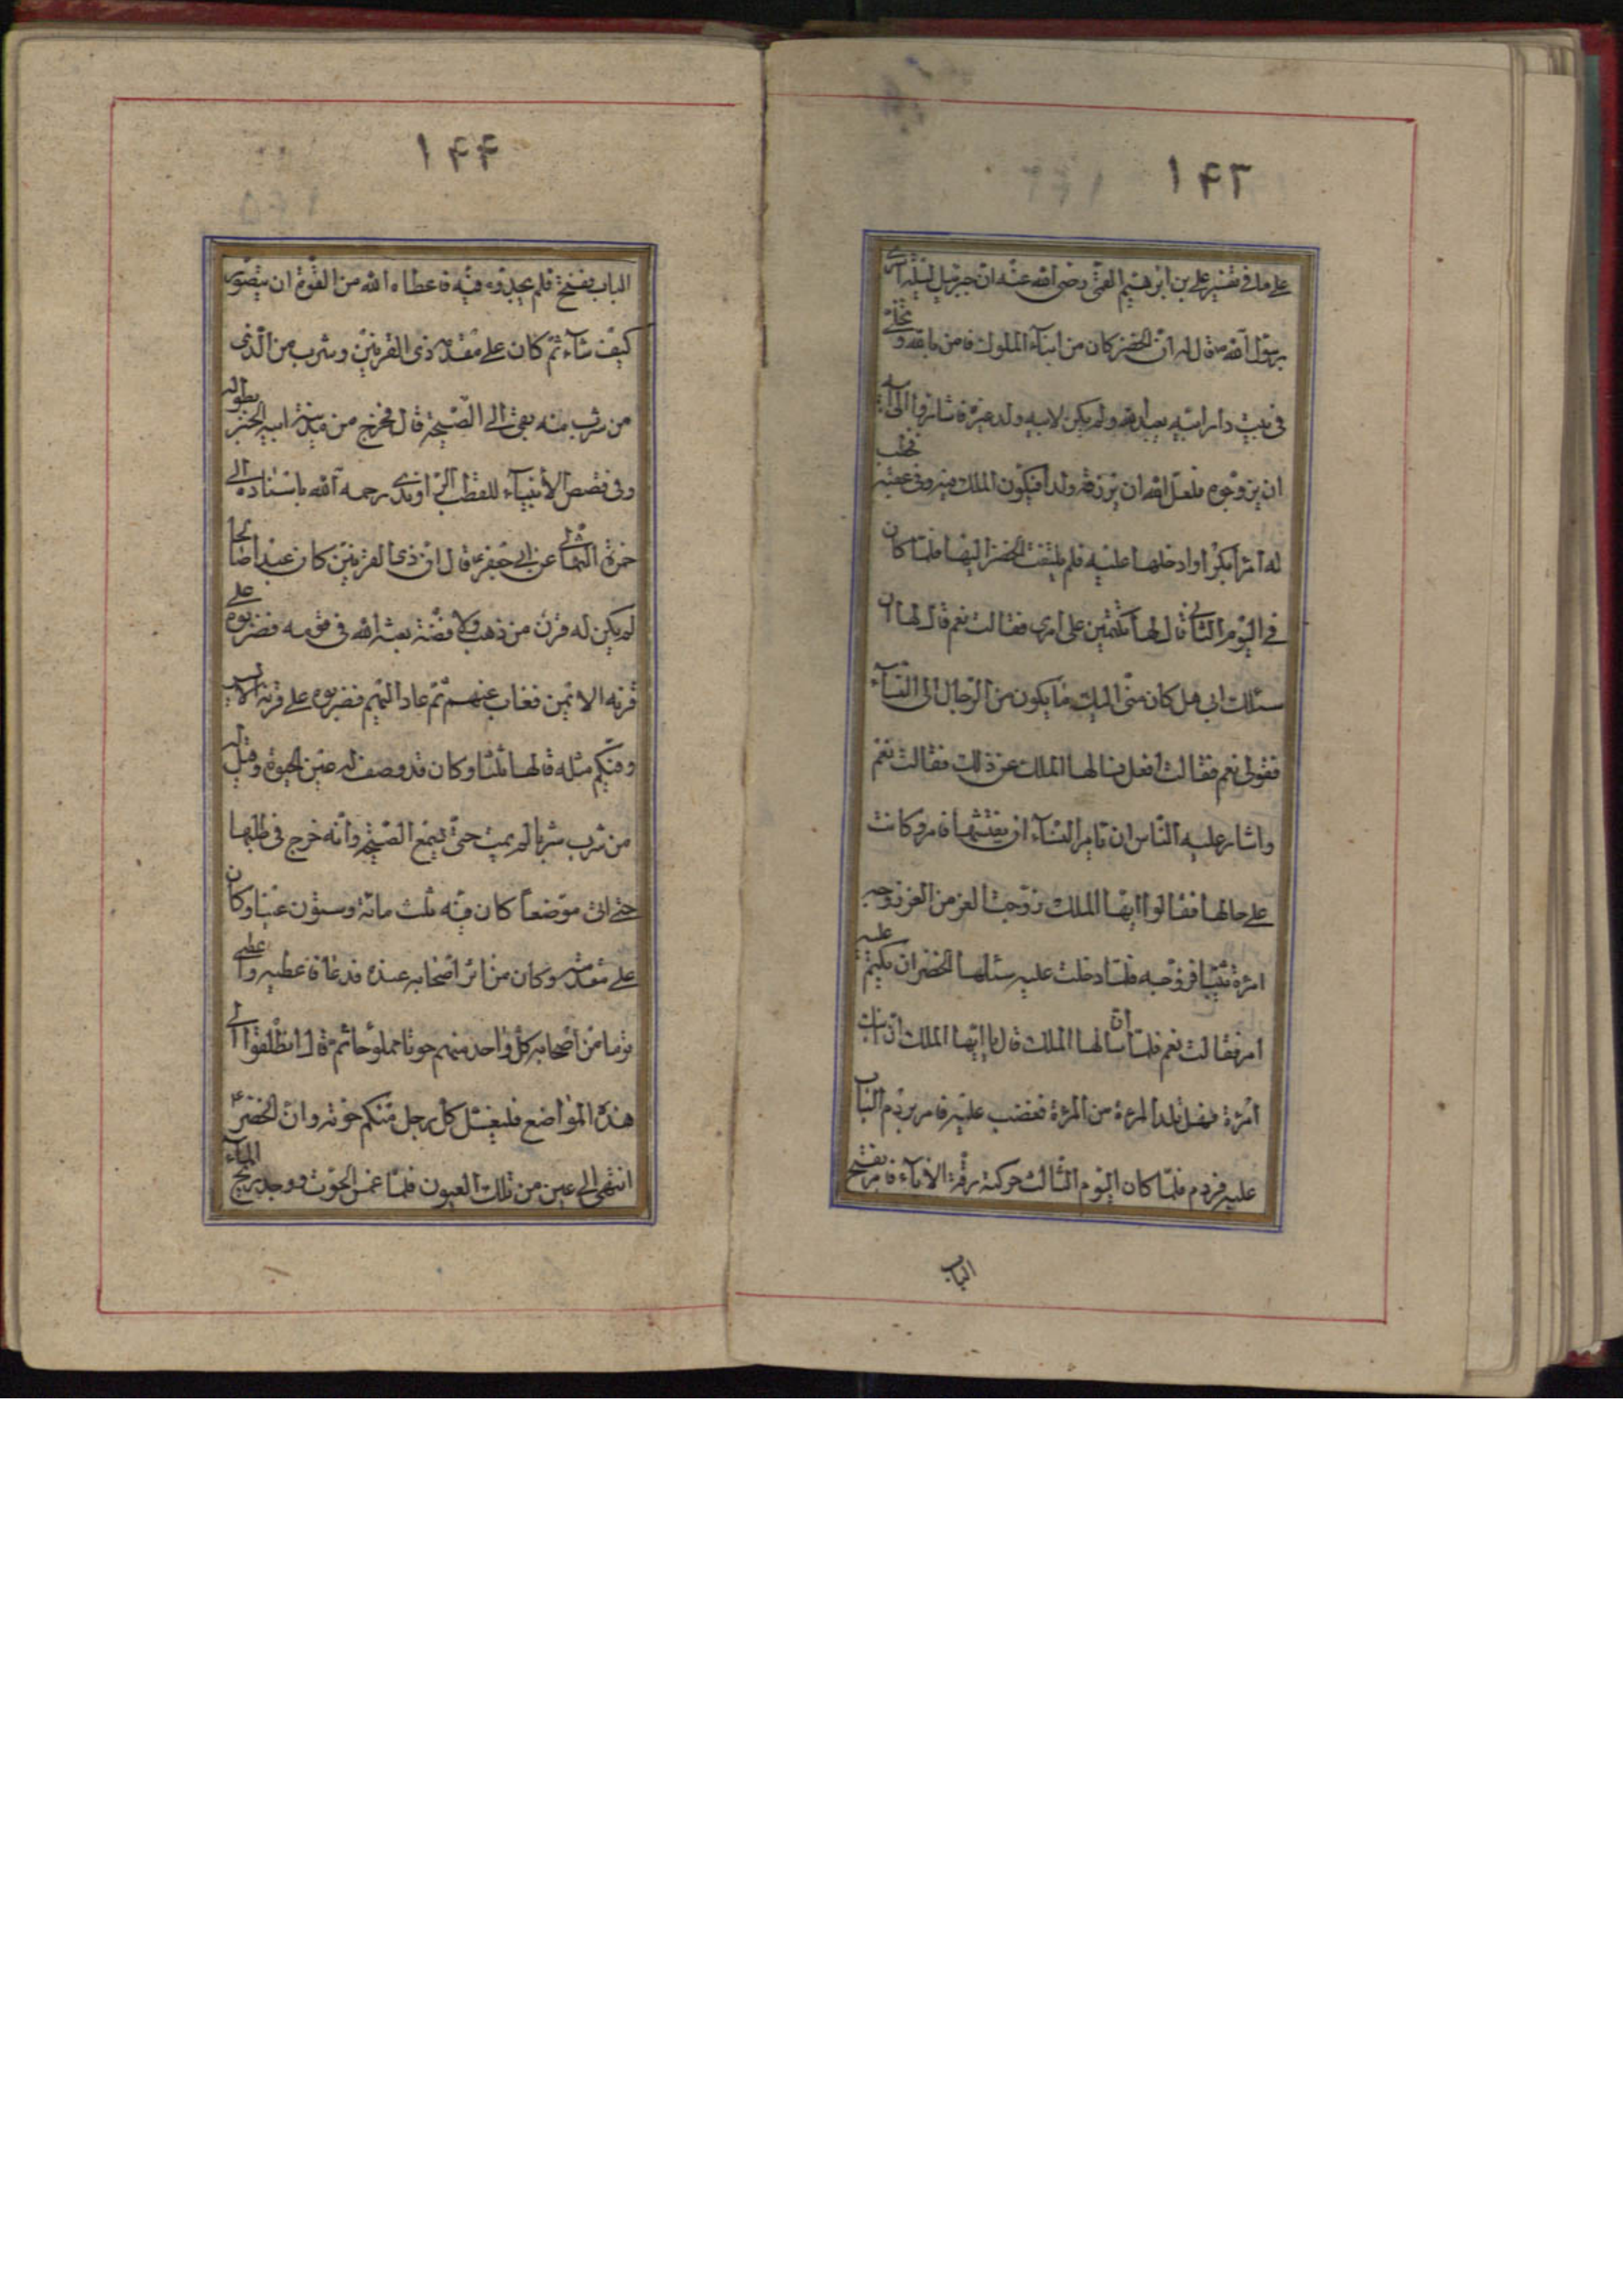 ۱۴۳
علی ما فی تفسیر علی بن ابرهیم القمی رضی الله عنه ان جبرئیل لیلة اسری
برسول الله ص قال له ان الخضر کان من ابناء الملوک فامن بالله و تخلی
فی بیت دار ابیه یعبد الله ولم یکن لابیه ولد غیره فاشاروا الی ابیه
ان یزوجوه فلعل الله ان یرزقه ولدا فیکون الملک فیه و فی عقبه فخطب
له امرأة بکرا و ادخلها علیه فلم یلتفت الخضر الیها فلما کان
فی الیوم الثانی قال لها تکتمین علی امری فقالت نعم قال لها ان
سئلک ابی هل کان منی الیک ما یکون من الرجال الی النساء
فقولی نعم فقالت افعل فسالها الملک عن ذلک فقالت نعم
واشار علیه الناس ان یامر النساء ان یفتشنها فامر وکانت
علی حالها فقالوا ایها الملک زوجت الغر من الغر زوجه
امرأة ثیبا فزوجه فلما دخلت علیه سئلها الخضر ان یکتم علیه
امره فقالت نعم فلما ان سالها الملک قال یا ایها الملک ان ابنک
امرأة فهل تلد المرءة من المرءة فغضب علیه فامر بردم الباب
علیه فردم فلما کان الیوم الثالث حرکته رقة الاباء فامر بفتح
الباب
۱۴۴
الباب ففتح فلم یجدوه فیه فاعطاه الله من القوة ان یتصور
کیف شاء ثم کان علی مقدمة ذی القرنین وشرب من الماء الذی
من شرب منه بقی الی الصیحة قال فخرج من مدینة ابیه الخبر بطوله
وفی قصص الأنبیاء للقطب الراوندی رحمه الله باسناده الی
حمزة الثمالی عن ابی جعفر ع قال ان ذی القرنین کان عبدا صالحا
لم یکن له قرن من ذهب ولا فضة بعثه الله فی قومه فضربوه علی
قرنه الایمن فغاب عنهم ثم عاد الیهم فضربوه علی قرنه الایسر
وفیکم مثله قالها ثلثا وکان قد وصف له عین الحیوة وقیل له
من شرب شربا لم یمت حتی یسمع الصیحة وانه خرج فی طلبها
حتی اتی موضعا کان فیه ثلث مائة وستون عینا وکان
علی مقدمته وکان من اثر اصحابه عنده فدعاه فاعطیه واعطی
قوما من اصحابه کل واحد منهم حوتا مملوحا ثم قال انطلقوا الی
هذه المواضع فلیغسل کل رجل منکم حوته وان الخضر ع
انتهی الی عین من تلک العیون فلما غمس الحوت ووجد ریح الماء